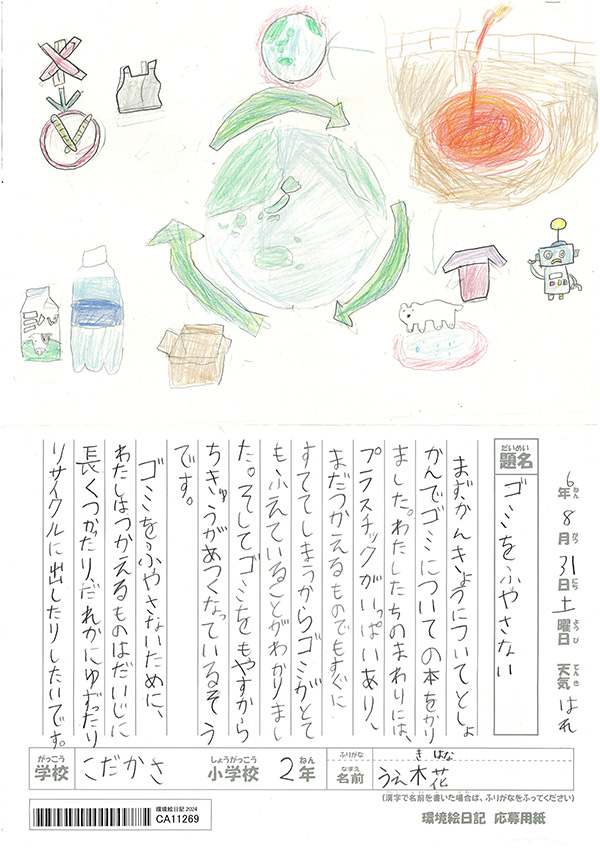 6年8月31日土曜日 天気 はれ
ねん がつ にち ようび てんき
だいめい
題名
ゴミをふやさない
まず、かんきょうについてとしょ
かんでゴミについての本をかり
ました。わたしたちのまわりには、
プラスチックがいっぱいあり、
まだつかえるものでもすぐに
すててしまうからゴミがとて
もふえていることがわかりまし
た。そしてゴミをもやすから
ちきゅうがあつくなっているそう
です。
ゴミをふやさないために、
わたしはつかえるものはだいじに
長くつかったり、だれかにゆずったり
リサイクルに出したりしたいです。
がっこう
学校
こだかさ
しょうがっこう
小学校
2年
ねん
ふりがな
き はな
なまえ
名前
うえ木 花
(漢字で名前を書いた場合は、ふりがなをふってください)
環境絵日記 2024
CA11269
環境絵日記 応募用紙